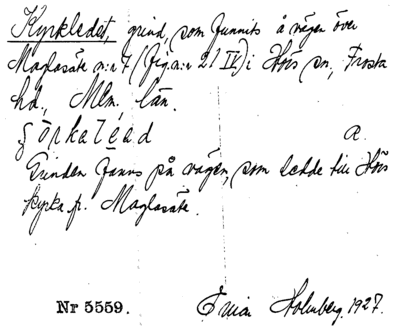 Kyrkledet, grind, som funnits å vägen över
Maglasäte n:r 7 (fig. n:r 21 IV) i Hörs sn, Frosta
hd, Mlm. län.
a.
Grinden fanns på vägen, som ledde till Hörs
kyrka fr. Maglasäte.
Nr 5559. Holmberg. 1927.